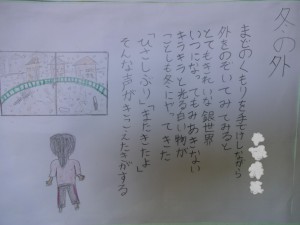 冬の外
まどのくもりを手でけしながら
外をのぞいてみてみると
とてもきれいな銀世界
いつになってもみあきない
キラキラと光る白い物が
ことしも冬にやってきた
「ひさしぶり」「またきたよ」
そんな声がきこえたきがする